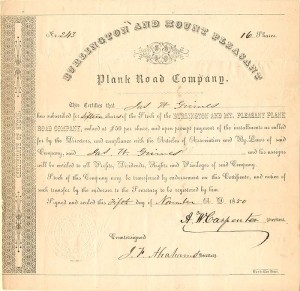 No. 243
16 Shares.
BURLINGTON AND MOUNT PLEASANT
Plank Road Company.
This Certifies that Jas W Grimes
has subscribed for sixteen shares of the Stock of the BURLINGTON AND MT. PLEASANT PLANK
ROAD COMPANY, valued at $50 per share, and upon prompt payment of the installments as called
for by the Directors, and compliance with the Articles of Association and By-Laws of said
Company, said Jas. W. Grimes and his assigns
will be entitled to all Profits, Dividends, Rights and Privileges of said Company.
Stock in this Company may be transferred by endorsement on this Certificate, and notice
of such transfer by the endorser to the Secretary to be registered by him.
Signed and sealed this fifth day of November A. D. 1850
A. W. Carpenter President.
Countersigned
J. F. Abrahams Secretary